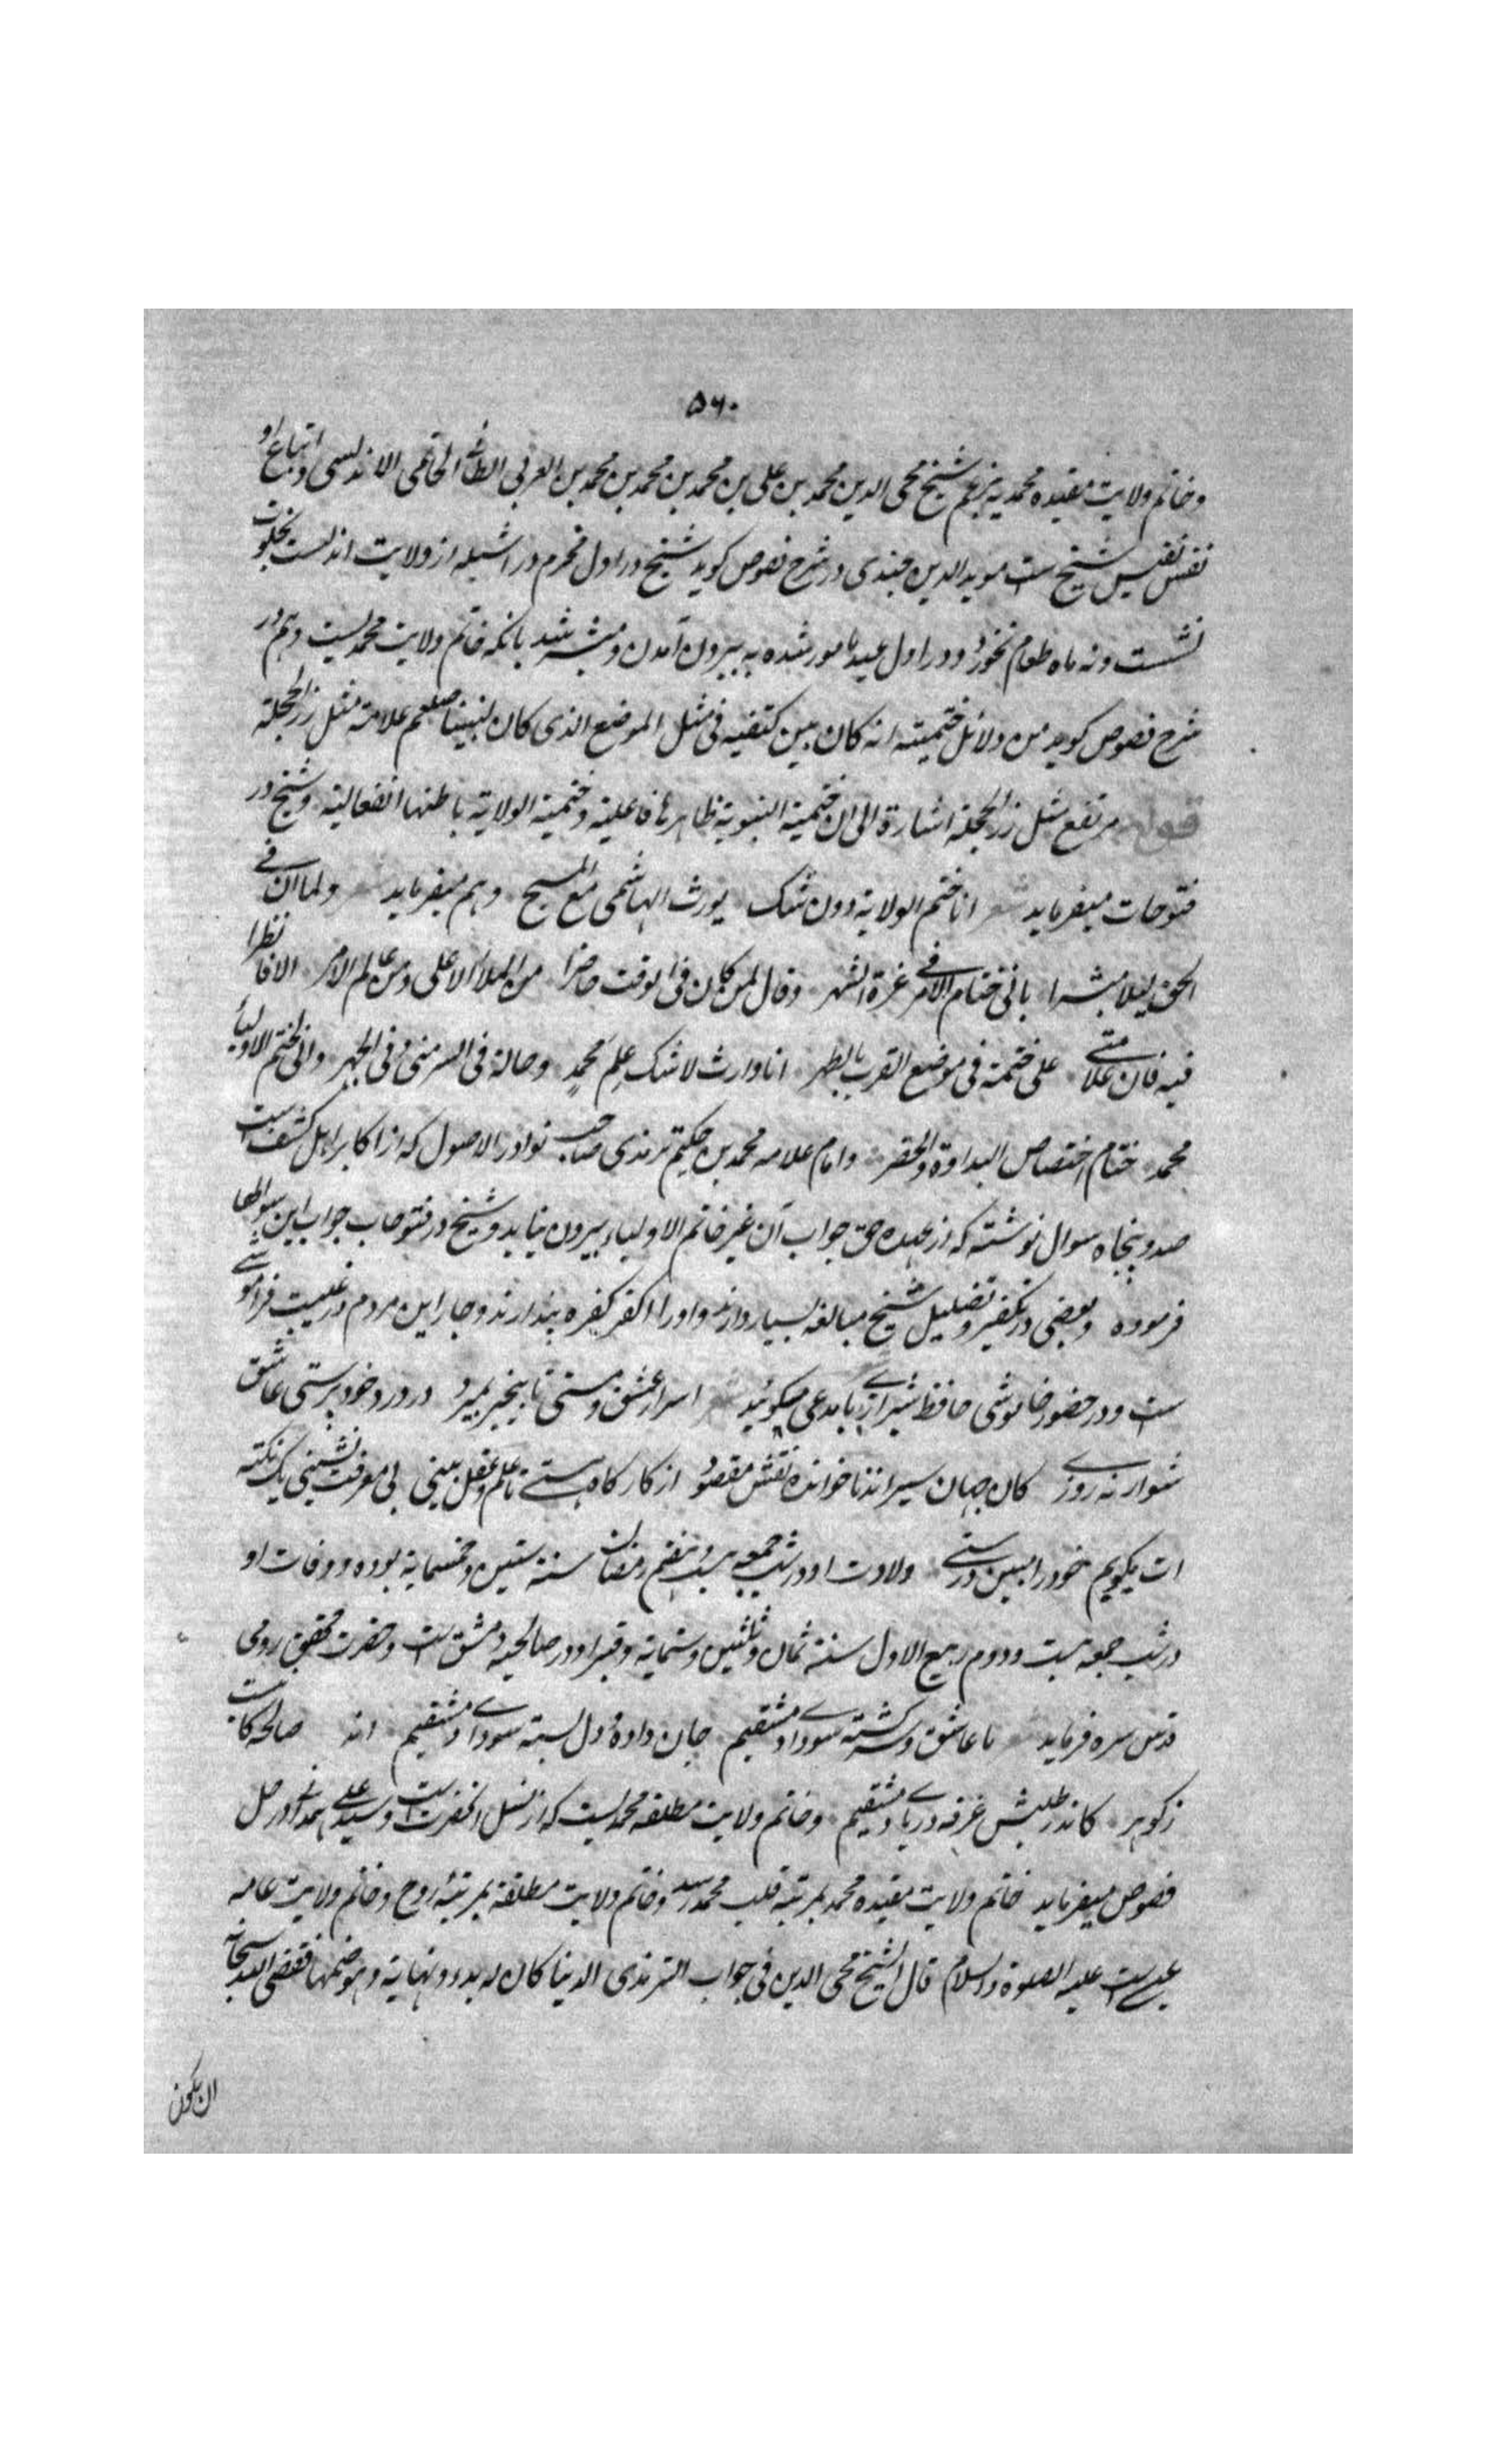 ۵۶۰
وخاتم ولایت مقیده محمدیه بزعم شیخ محی الدین محمد بن علی بن محمد بن محمد بن محمد بن العربی الطائی الحاتمی الاندلسی و اتباع او
نفس نفیس شیخ ست موید الدین جندی در شرح فصوص کوید شیخ در اول محرم در اشبیله از ولایت اندلس بخلوت
نشست و نه ماه طعام نخورد و در اول عید مامور شده به بیرون آمدن و مبشر شد بانکه خاتم ولایت محمدیست و هم در
شرح فصوص کوید من دلائل ختمیته انه کان بین کتفیه فی مثل الموضع الذی کان لنبینا صلعم علامة مثل زر الحجلة
مرتفع مثل زر الحجلة اشارة الی ان ختمیة النبویة ظاهرة فاعلیة و ختمیة الولایة باطنها انفعالیة و شیخ در
فتوحات میفرماید شعر انا ختم الولایة دون شک یورث الهاشمی مع المسیح و هم میفرماید شعر ولما ان فی
الحق لیلا مبشرا بانی ختام الامر فی غرة الشهر وقال لمن کان فی الوقت حاضرا من الملأ الاعلی ومن عالم الامر الا فانظرا
فیه فان علامتی علی ختمة فی موضع القرب بالطهر انا وارث لا شک علم محمد و حالة فی السر منی وفی الجهر وانی لختم الاولیاء
محمد ختام اختصاص البداوة والحضر وامام علامه محمد بن حکیم ترمذی صاحب نوادر الاصول که از اکابر اهل کشف است
صد و پنجاه سوال نوشته که از عهده حق جواب آن غیر خاتم الاولیاء بیرون نیاید و شیخ در فتوحات جواب این سوالها
فرموده و بعضی در تکفیر و تضلیل شیخ مبالغه بسیار دارند و او را اکفر کفره پندارند و چار این مردم در غیبت فراموشی
ست و در حضور خاموشی حافظ شیرازی با مدعی مکوئید اسرار عشق و مستی تا بیخبر بمیرد در درد خود پرستی عاشق
شو ار نه روزی کار جهان سر اند ناخوانده نقش مقصود از کارکاه هستی تا علم و عقل بینی بی معرفت نشینی یک نکته
ات بکویم خود را مبین و رستی ولادت او در شب جمعه بیست و هفتم رمضان سنة ستین و خمسمایة بوده و وفات او
در شب جمعه بیست و دوم ربیع الاول سنة ثمان و ثلثین و ستمایة و قبر او در صالحیه دمشق ست و حضرت محقق رومی
قدس سره فرماید ما عاشق و سرکشته سودای دمشقیم جان داده و دل بسته سودای دمشقیم اند صالحه کانیست
ز کوهر کاندر طلبش غرقه دریای دمشقیم و خاتم ولایت مطلقه محمدیست که از نسل آنحضرت است و سید علی همدانی در حل
فصوص میفرماید خاتم ولایت مقیده محمد بمرتبه قلب محمد رسد و خاتم ولایت مطلقه بمرتبه روح و خاتم ولایت عامه
عیسی ست علیه الصلوة والسلام قال الشیخ محی الدین فی جواب الترمذی الدنیا کان له بدء ونهایة وهو ختمها فقضی الله سبحانه
ان یکون